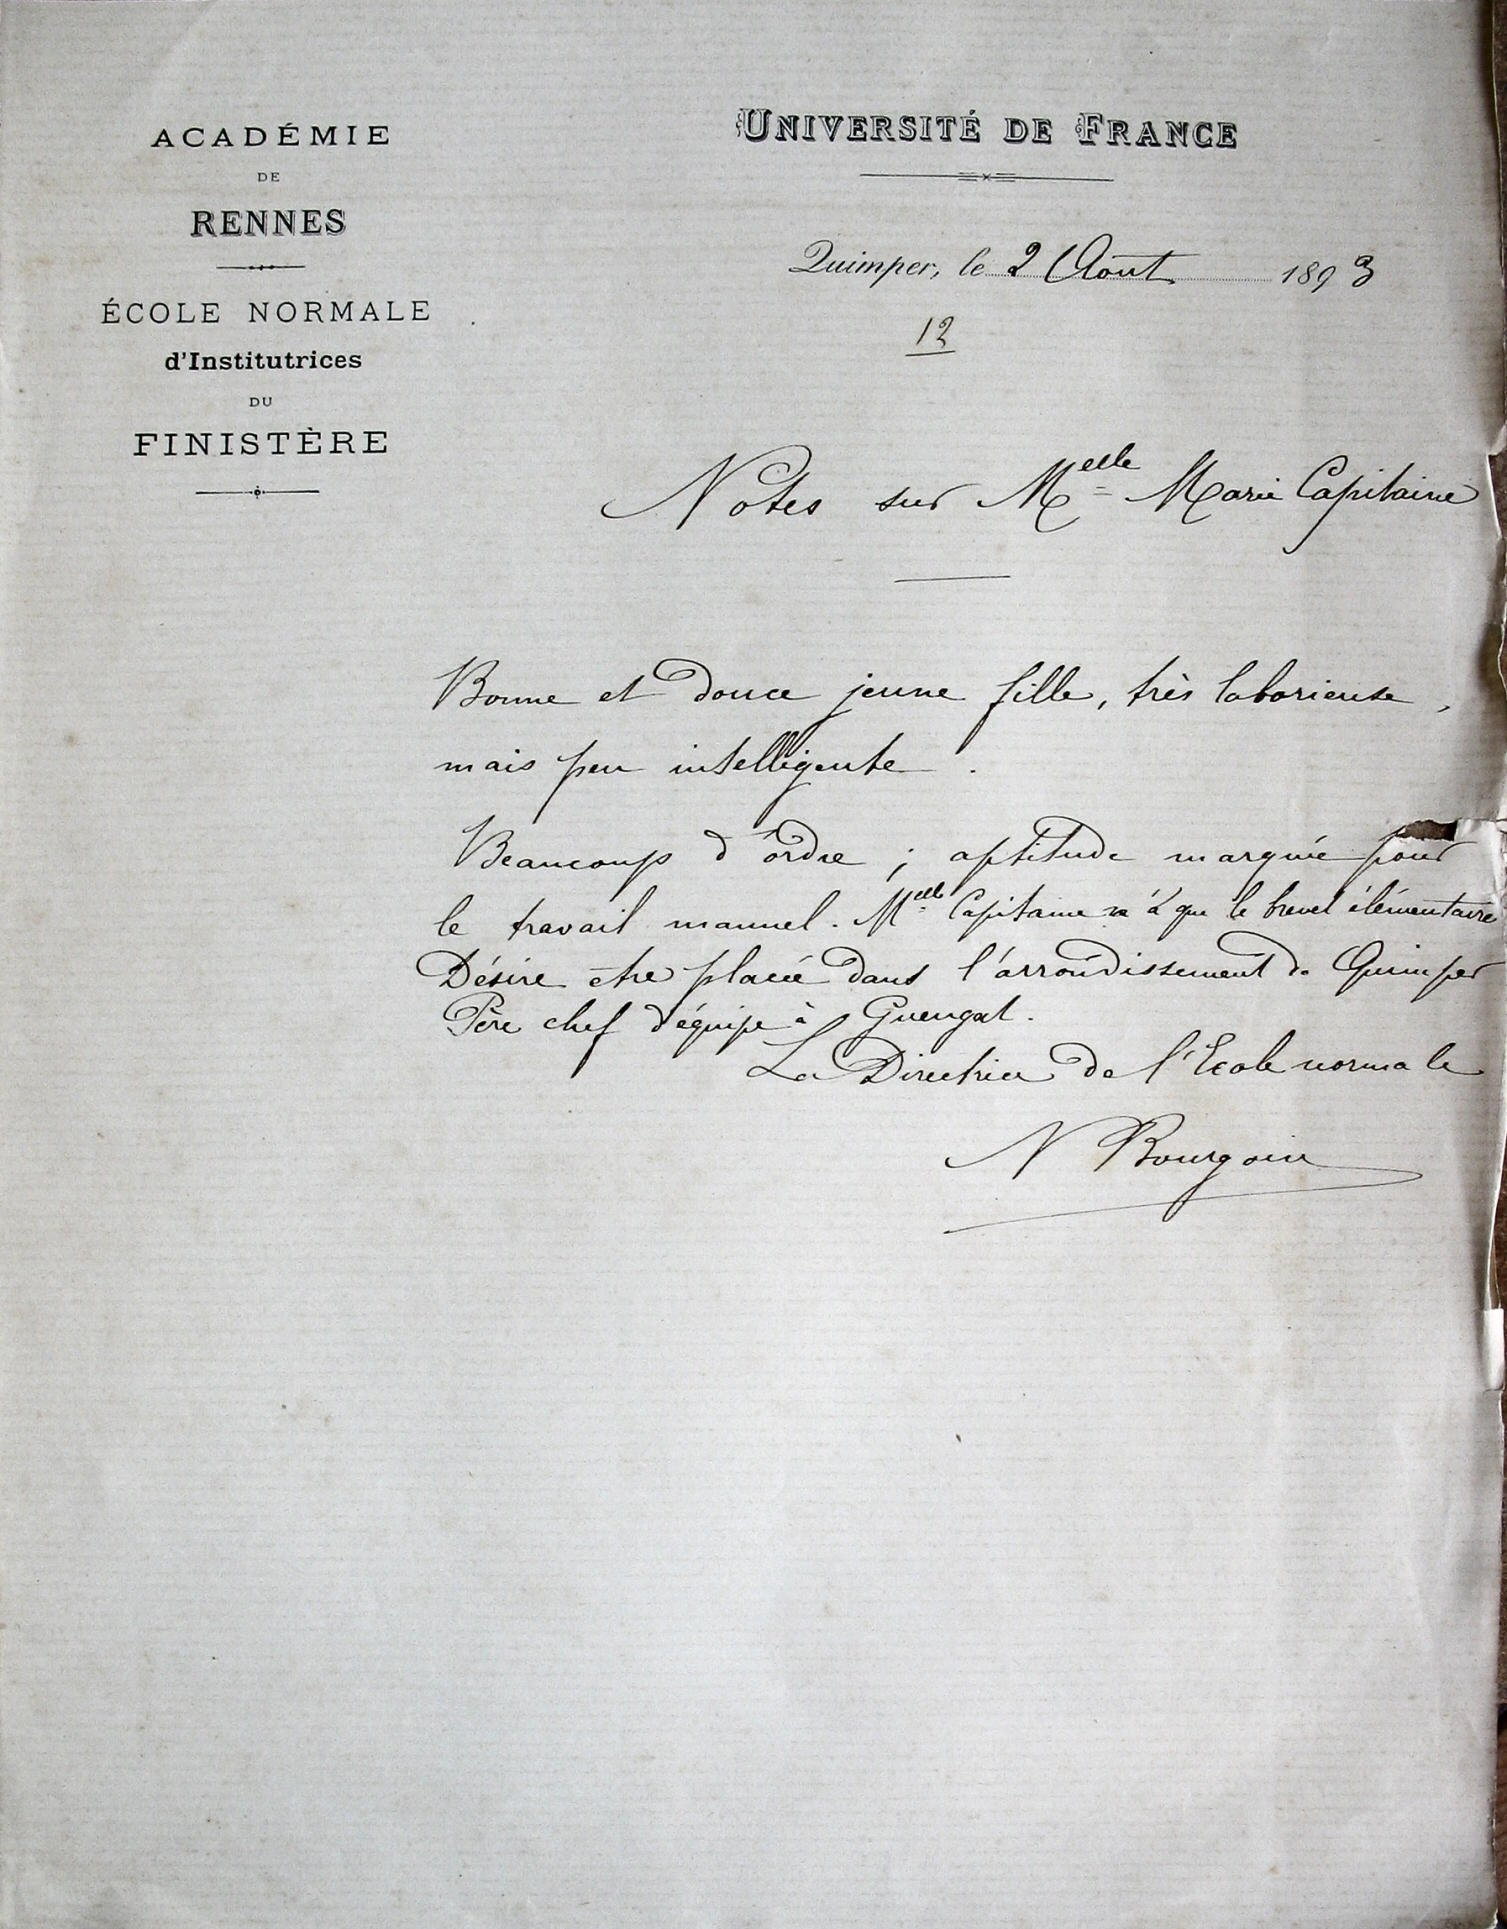 ACADÉMIE
DE
RENNES
ÉCOLE NORMALE
d'Institutrices
DU
FINISTÈRE
UNIVERSITÉ DE FRANCE
Quimper, le 2 Août 1893
12
Notes sur Melle Marie Capitaine
Bonne et douce jeune fille, très laborieuse,
mais peu intelligente.
Beaucoup d'ordre ; aptitude marquée pour
le travail manuel. Melle Capitaine n'a que le brevet élémentaire
Désire être placée dans l'arrondissement de Quimper
Père chef d'équipe à Guengat.
La Directrice de l'Ecole normale
N Bourgoin